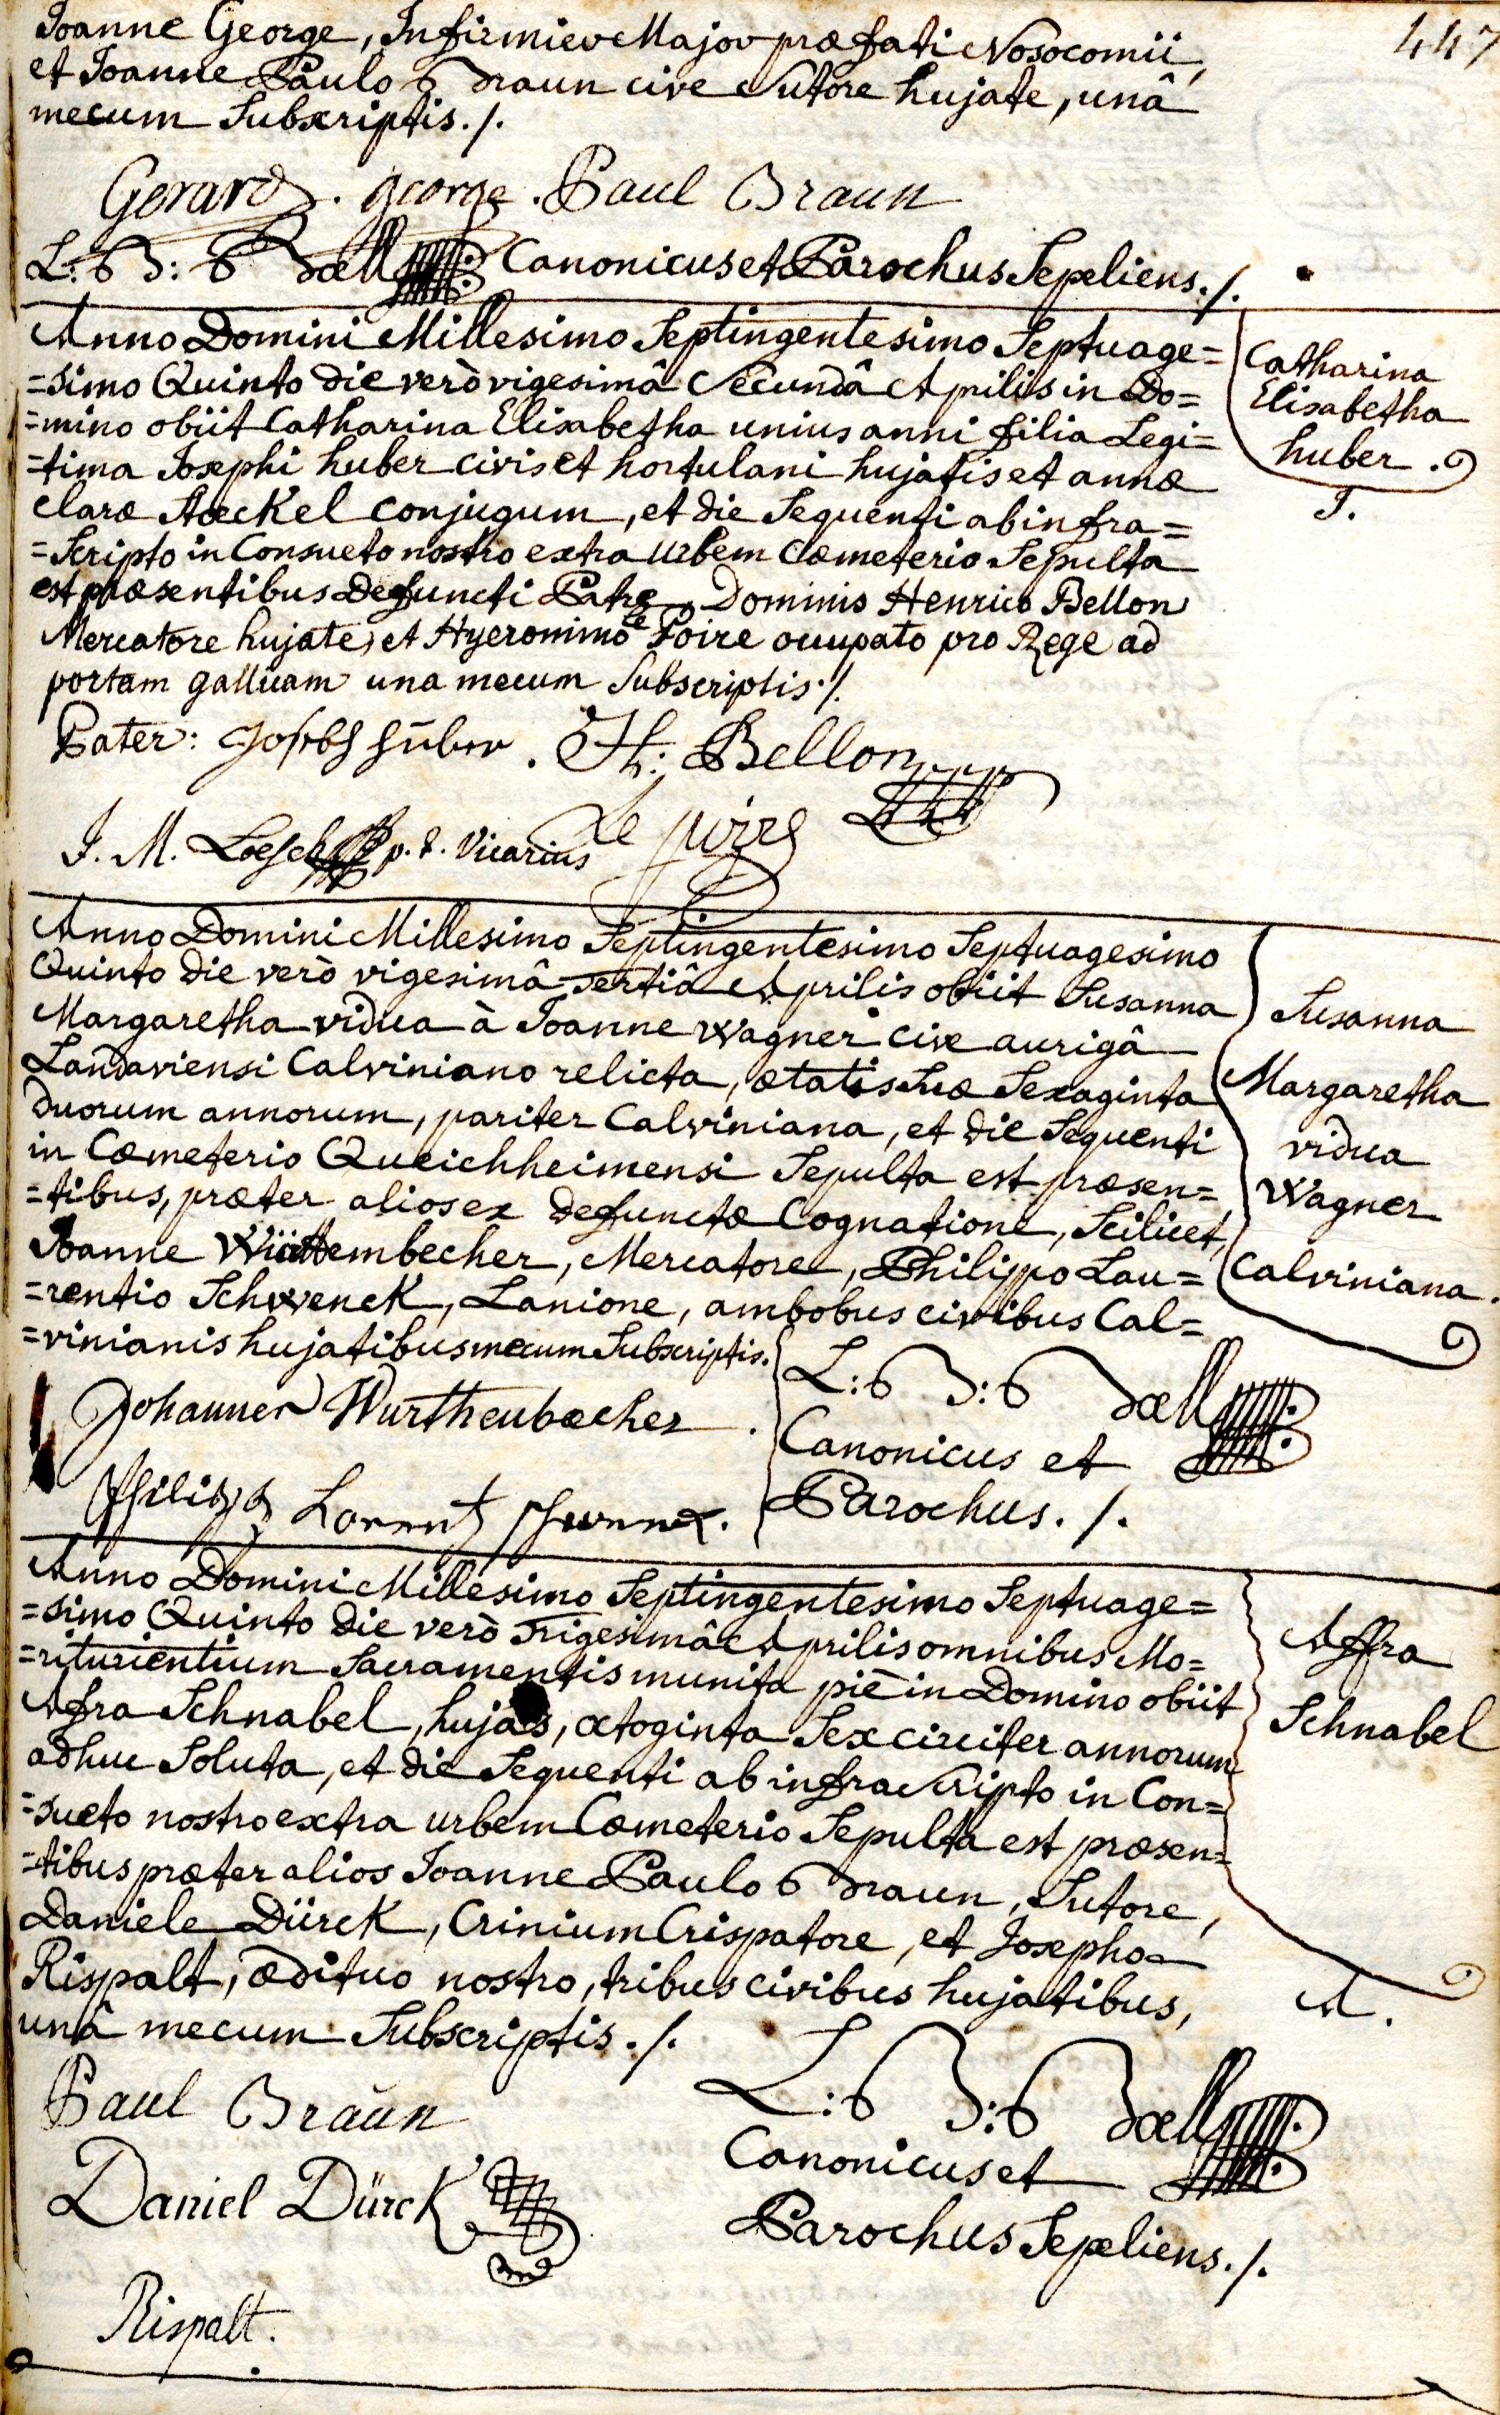 447
Joanne George, Infirmiero Major præfati Nosocomii,
et Joanne Paulo Braun cive Sutore hujate, unâ
mecum Subscriptis ./.
Gerard . george . Paul Braun
L: B: Boell Canonicus et Parochus Sepeliens ./.
Anno Domini Millesimo Septingentesimo Septuage=
=simo Quinto die verò vigesimâ Secundâ Aprilis in Do=
=mino obiit Catharina Elisabetha unius anni filia Legi=
=tima Josephi huber civis et hortulani hujatis et annæ
claræ Stoeckel conjugum, et die Sequenti ab infra=
=Scripto in Consueto nostro extra urbem Cœmeterio Sepulta
est præsentibus Defuncti Patre, Dominis Henrico Bellon
Mercatore hujate, et Hyeronimo le Poire occupato pro Rege ad
portam gallicam una mecum Subscriptis ./.
Catharina
Elisabetha
huber .
J.
Pater: Joseph Hüber . H: Bellon
J. M. Loesch p. t. Vicarius
Le poire
Anno Domini Millesimo Septingentesimo Septuagesimo
Quinto die verò vigesimâ tertiâ Aprilis obiit Susanna
Margaretha vidua à Joanne Wagner cive aurigâ
Landaviensi Calviniano relicta, ætatis Suæ Sexaginta
duorum annorum, pariter Calviniana, et die Sequenti
in Cœmeterio Queichheimensi Sepulta est præsen=
=tibus, præter alios ex defunctæ Cognatione, Scilicet,
Joanne Württembecher, Mercatore, Philippo Lau=
=rentio Schwenck, Lanione, ambobus civibus Cal=
=vinianis hujatibus mecum Subscriptis.
Susanna
Margaretha
vidua
Wagner
Calviniana.
Johannes Wurthenbæcher .
Philipp Lorentz Schwenck .
L: B: Boell
Canonicus et
Parochus ./.
Anno Domini Millesimo Septingentesimo Septuage=
=simo Quinto die verò Trigesimâ Aprilis omnibus Mo=
=riturientium Sacramentis munita piè in Domino obiit
Afra Schnabel, hujas, octoginta Sex circiter annorum
adhuc Soluta, et die Sequenti ab infra Scripto in Con=
=sueto nostro extra urbem Cœmeterio Sepulta est præsen=
=tibus præter alios Joanne Paulo Braun, Sutore,
Daniele Dürck, Crinium Crispatore, et Josepho
Rispalt, ædituo nostro, tribus civibus hujatibus,
unâ mecum Subscriptis ./.
Affra
Schnabel
A.
Paul Braun
Daniel Dürck
Rispalt.
L: B: Boell
Canonicus et
Parochus Sepeliens ./.